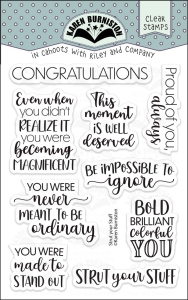 KAREN BURNISTON
CLEAR
STAMPS
IN CAHOOTS WITH RILEY AND COMPANY
CONGRATULATIONS
Even when
you didn't
REALIZE IT
you were
becoming
MAGNIFICENT
This
moment
IS WELL
deserved
Proud of you,
always
BE IMPOSSIBLE TO
ignore
YOU WERE
never
MEANT TO BE
ordinary
Strut your Stuff
©Karen Burniston
BOLD
BRILLIANT
colorful
YOU
YOU WERE
made to
STAND OUT
STRUT YOUR STUFF